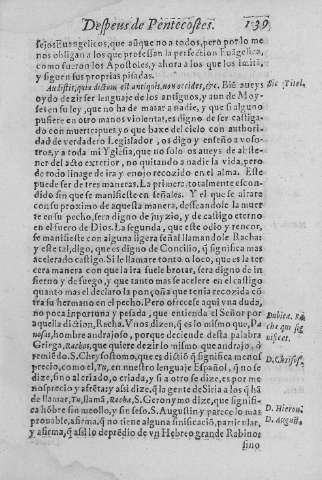 Despeus de Pentecostes. 139
sejos Euangelicos, que aũque no a todos, pero por lo me
nos obligan a los que professan la perfection Euãgelica,
como fueron los Apostoles, y ahora a los que los imitã,
y siguen sus proprias pisadas.
Audistis, quia dictum est antiquis, non occides, &c. Biẽ aueys
oydo dezir ser lenguaje de los antiguos, y aun de Moy-
ses en su ley, que no ha de matar a nadie, y que si alguno
pusiere en otro manos violentas, es digno de ser castiga-
do con muerte: pues yo que baxe del cielo con authori-
dad de verdadero Legislador, os digo y enseño a voso-
tros, y a toda mi Yglesia, que no solo os aueys de abste-
ner del acto exterior, no quitando a nadie la vida, pero
de todo linage de ira y enojo rezozido en el alma. Este
puede ser de tres maneras. La primera, totalmente escon-
dido sin que se manifieste en señales. Y el que se ayrare
con su proximo de aquesta manera, desseandole la muer
te en su pecho, sera digno de juyzio, y de castigo eterno
en el fuero de Dios. La segunda, que este odio y rencor,
se manifieste con alguna ligera señal llamandole Racha:
y este tal, digo, que es digno de Concilio, q̃ significa mas
acelerado castigo. Si le llamare tonto o loco, que es la ter
cera manera con que la ira suele brotar, sera digno de in
fierno y de fuego, y que tanto mas se acelere en el castigo
quanto mas el declaro la ponçoña que tenia rezozida cõ
tra su hermano en el pecho. Pero ofrecese aqui vna duda,
no poca inportuna y pesada, que entienda el Señor por
aquella diction, Racha. Vnos dizen, q̃ es lo mismo que, Pa
nosus, hombre andrajoso, porque deciende desta palabra
Griega, Racos, que quiere dezir lo mismo que andrajo, ò
remiẽdo. S. Chrysostomo, que es dictiõ q̃ significa menos
precio, como el, Tu, en nuestro lenguaje Español, q̃ no se
dize, sino al criado, o criada, y si a otro se dize, es por me
nosprecio y afrẽta: y assi dize, q̃ la gente de Siria a los q̃ hã
de llamar, Tu, llamã, Racha, S. Geronymo dize, que signifi-
ca hõbre sin meollo, y sin seso. S. Augustin y parece lo mas
prouable, afirma, q̃ no tiene alguna sinificaciõ, particular,
y afirma, q̃ assi lo deprẽdio de vn Hebreo grande Rabino:
sino
Sic Titel.
Dubita. Ra
cha que sig
nificet.
D. Chrisos.
D. Hieron.
D. August.